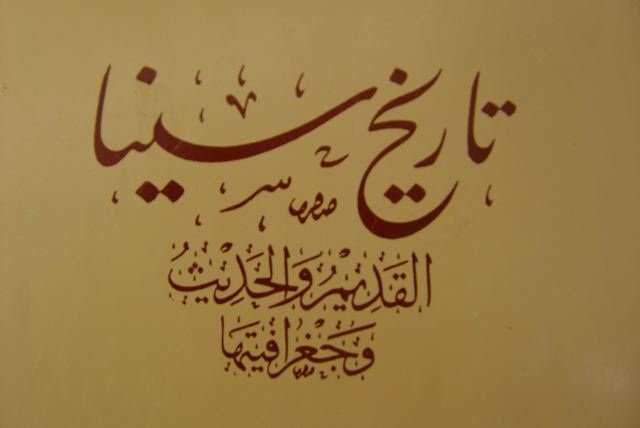 تاريخ سينا
القديم والحديث
وجغرافيتها